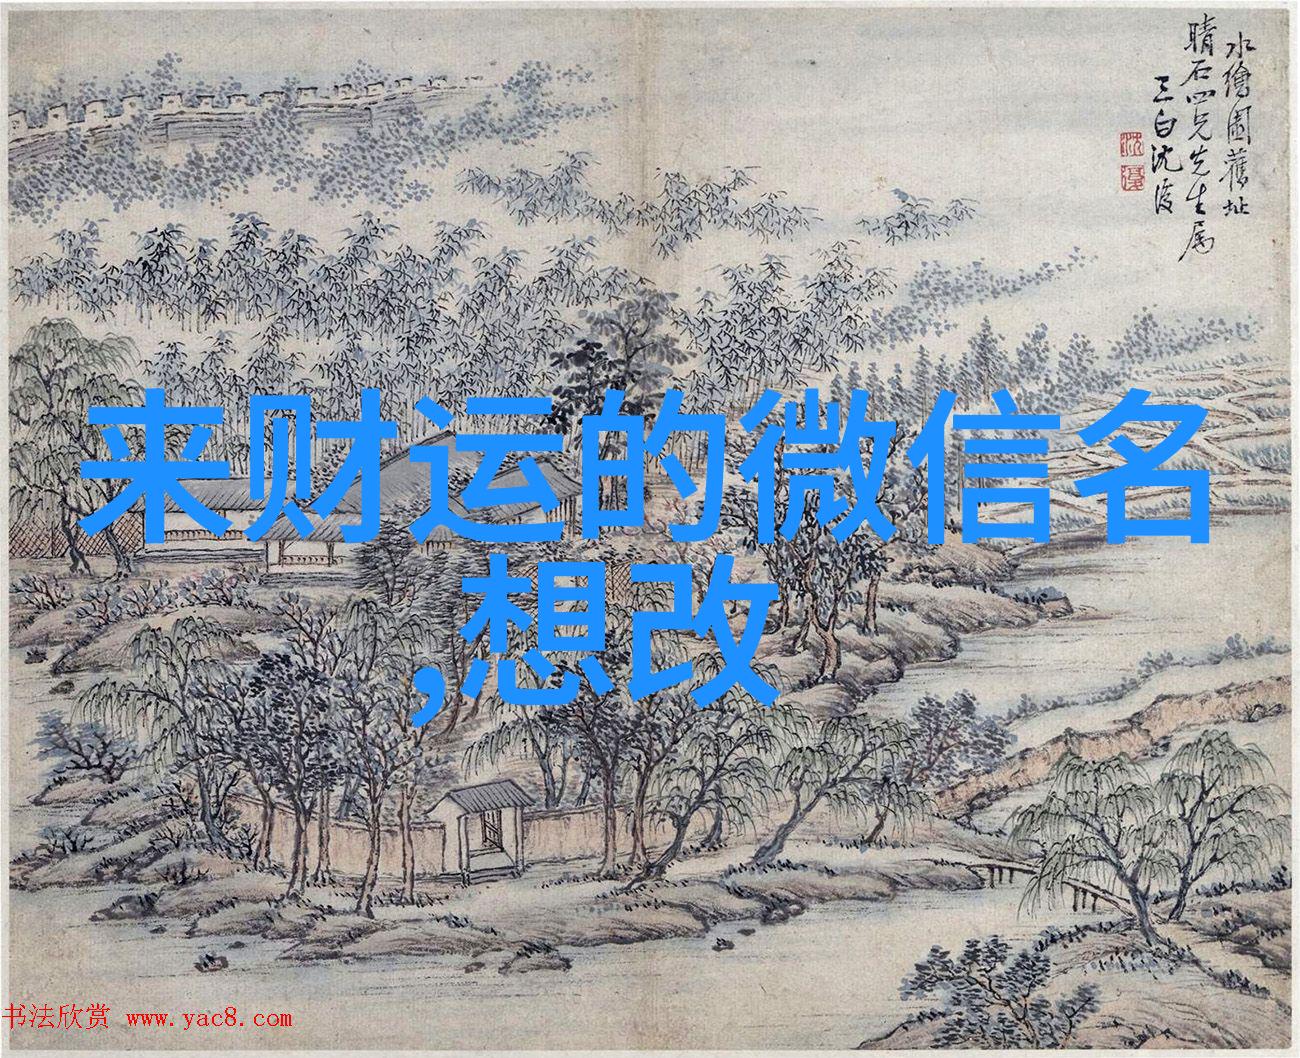 水繪園舊址
晴石四兄先生属
三白沈復
沈
復
来财运的微信名
,想改
书法欣赏 www.yac8.com